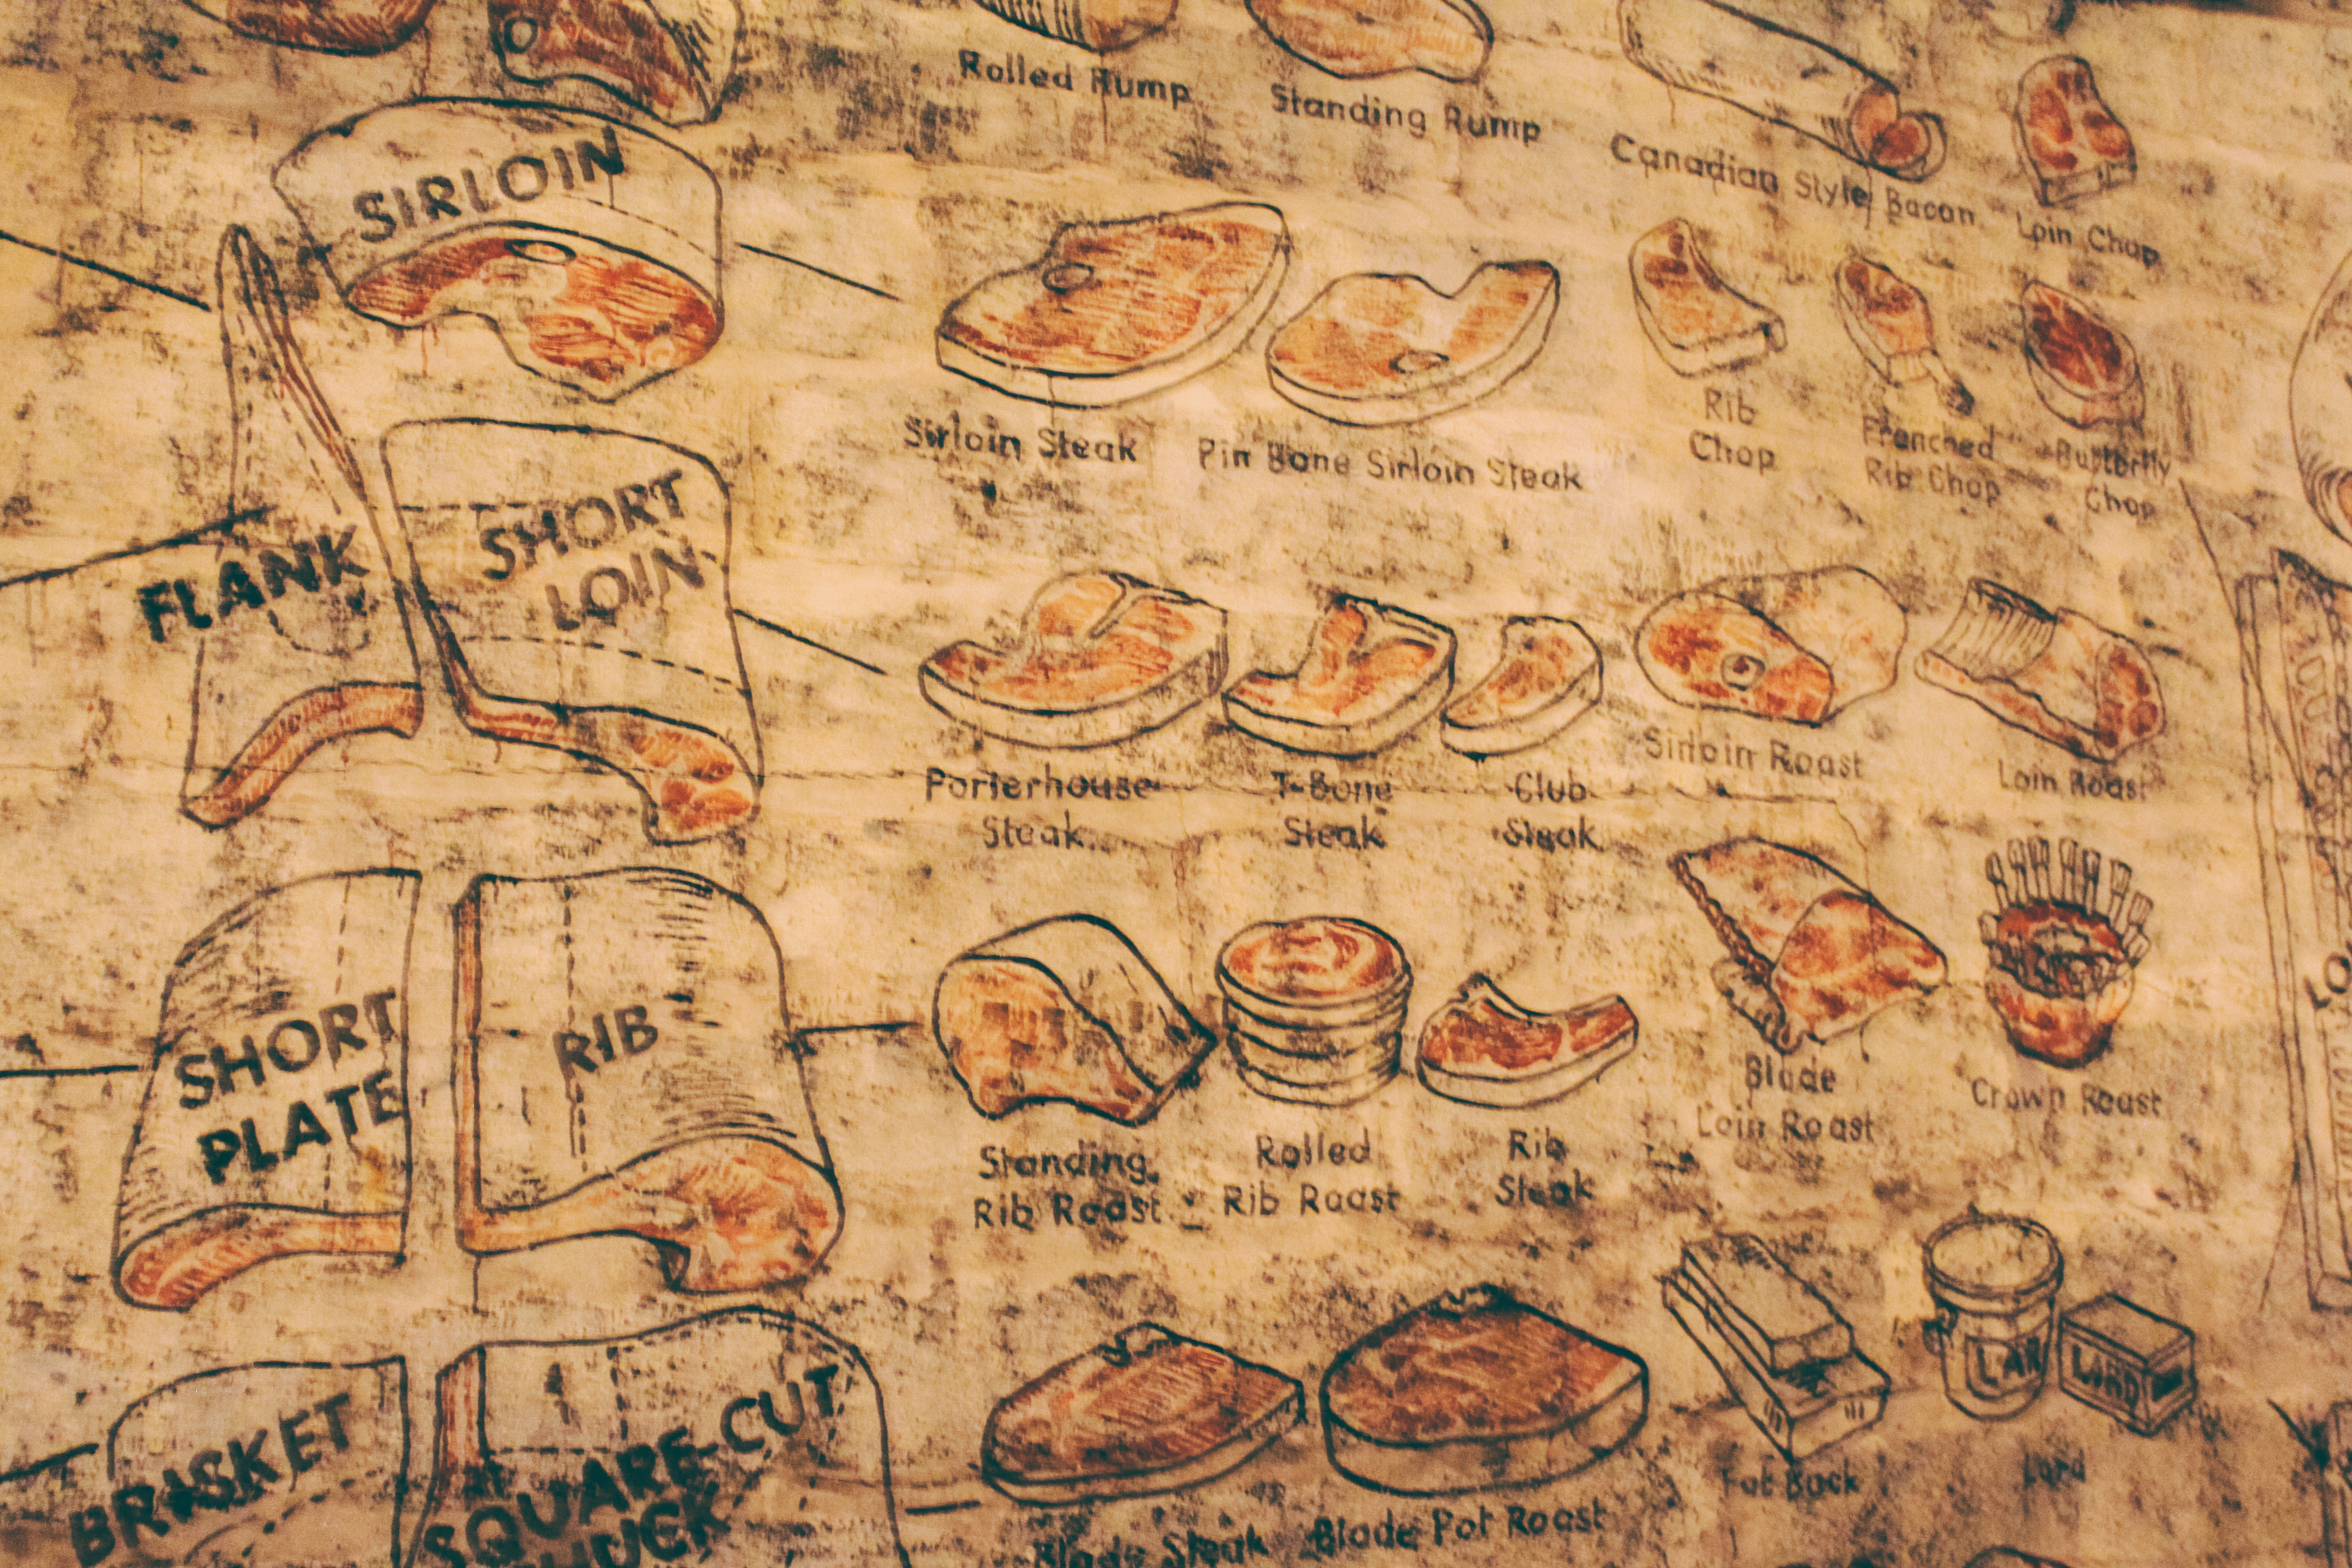 Rolled Rump
Standing Rump
Canadian Style Bacon
Loin Chop
SIRLOIN
Sirloin Steak
Pin Bone Sirloin Steak
Rib
Chop
Frenched
Rib Chop
Butterfly
Chop
FLANK
SHORT
LOIN
Porterhouse
Steak
T-Bone
Steak
Club
Steak
Sirloin Roast
Loin Roast
SHORT
PLATE
RIB
Standing
Rib Roast
Rolled
Rib Roast
Rib
Steak
Blade
Loin Roast
Crown Roast
LO
BRISKET
SQUARE-CUT
HUCK
Blade Steak
Blade Pot Roast
Fat Back
LAR
LARD
Lard